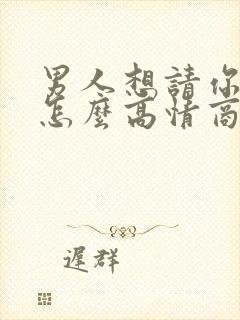 男人想請你
怎麼高情商
遲群